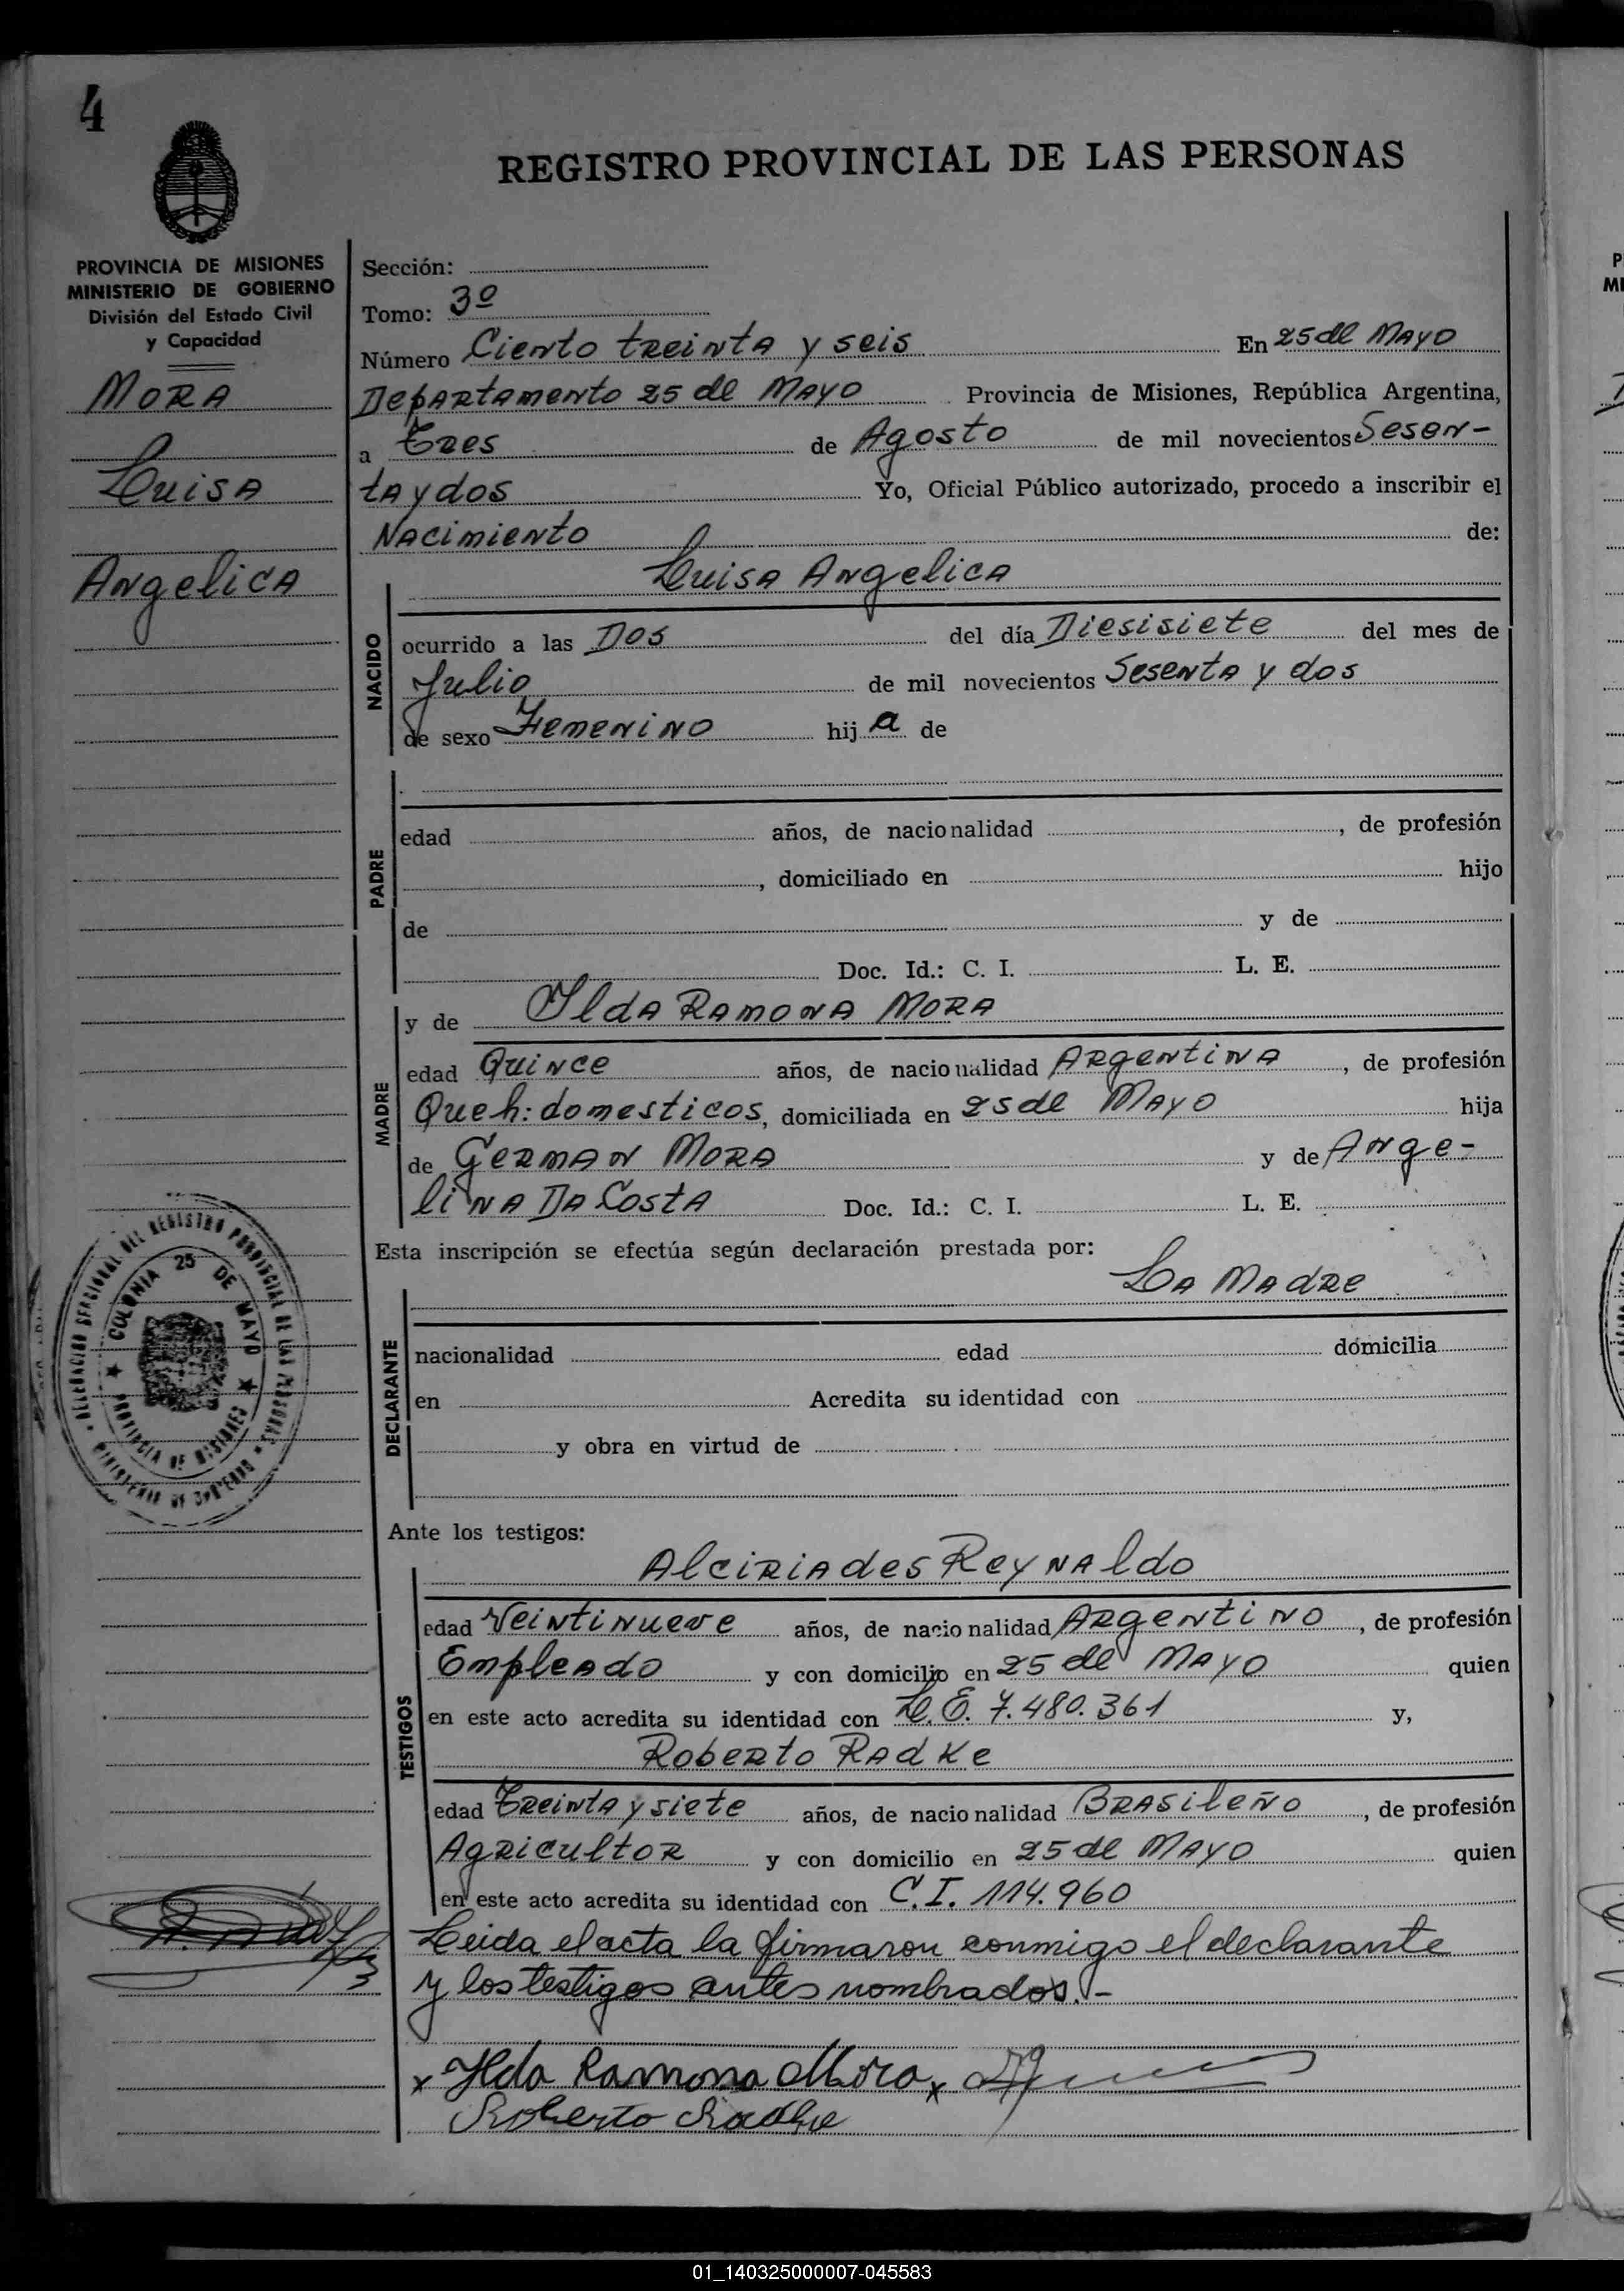 4
REGISTRO PROVINCIAL DE LAS PERSONAS
PROVINCIA DE MISIONES
MINISTERIO DE GOBIERNO
División del Estado Civil
y Capacidad
MORA
Luisa
Angelica
Sección:
Tomo: 3º
Número Ciento treinta y seis En 25 de Mayo
Departamento 25 de Mayo Provincia de Misiones, República Argentina,
a Tres de Agosto de mil novecientos Sesen-
ta y dos Yo, Oficial Público autorizado, procedo a inscribir el
Nacimiento de:
Luisa Angelica
NACIDO
ocurrido a las Dos del día Diesisiete del mes de
Julio de mil novecientos Sesenta y dos
de sexo Femenino hij a de
PADRE
edad años, de nacionalidad , de profesión
, domiciliado en hijo
de y de
Doc. Id.: C. I. L. E.
MADRE
y de Ilda Ramona Mora
edad Quince años, de nacionalidad Argentina, de profesión
Queh: domesticos, domiciliada en 25 de Mayo hija
de German Mora y de Ange-
lina Da Costa Doc. Id.: C. I. L. E.
Esta inscripción se efectúa según declaración prestada por:
La Madre
DECLARANTE
nacionalidad edad domicilia
en Acredita su identidad con
y obra en virtud de
DELEGACION SECCIONAL DEL REGISTRO PROVINCIAL DE LAS PERSONAS
COLONIA 25 DE MAYO
PROVINCIA DE MISIONES
MINISTERIO DE GOBIERNO
Ante los testigos:
TESTIGOS
Alciriades Reynaldo
edad Veintinueve años, de nacionalidad Argentino, de profesión
Empleado y con domicilio en 25 de Mayo quien
en este acto acredita su identidad con L.E. 7.480.361 y,
Roberto Radke
edad Treinta y siete años, de nacionalidad Brasileño, de profesión
Agricultor y con domicilio en 25 de Mayo quien
en este acto acredita su identidad con C.I. 114.960
Leida el acta la firmaron conmigo el declarante
y los testigos antes nombrados.-
x Ilda Ramona Mora x
Roberto Radke
01_140325000007-045583